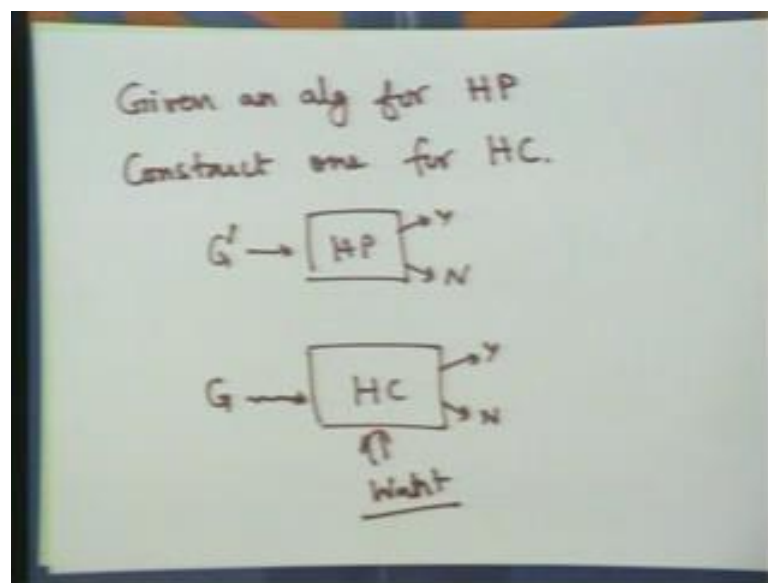 Given an alg for HP
Construct one for HC.
G' → HP Y
N
G → HC Y
N
⇑
Want